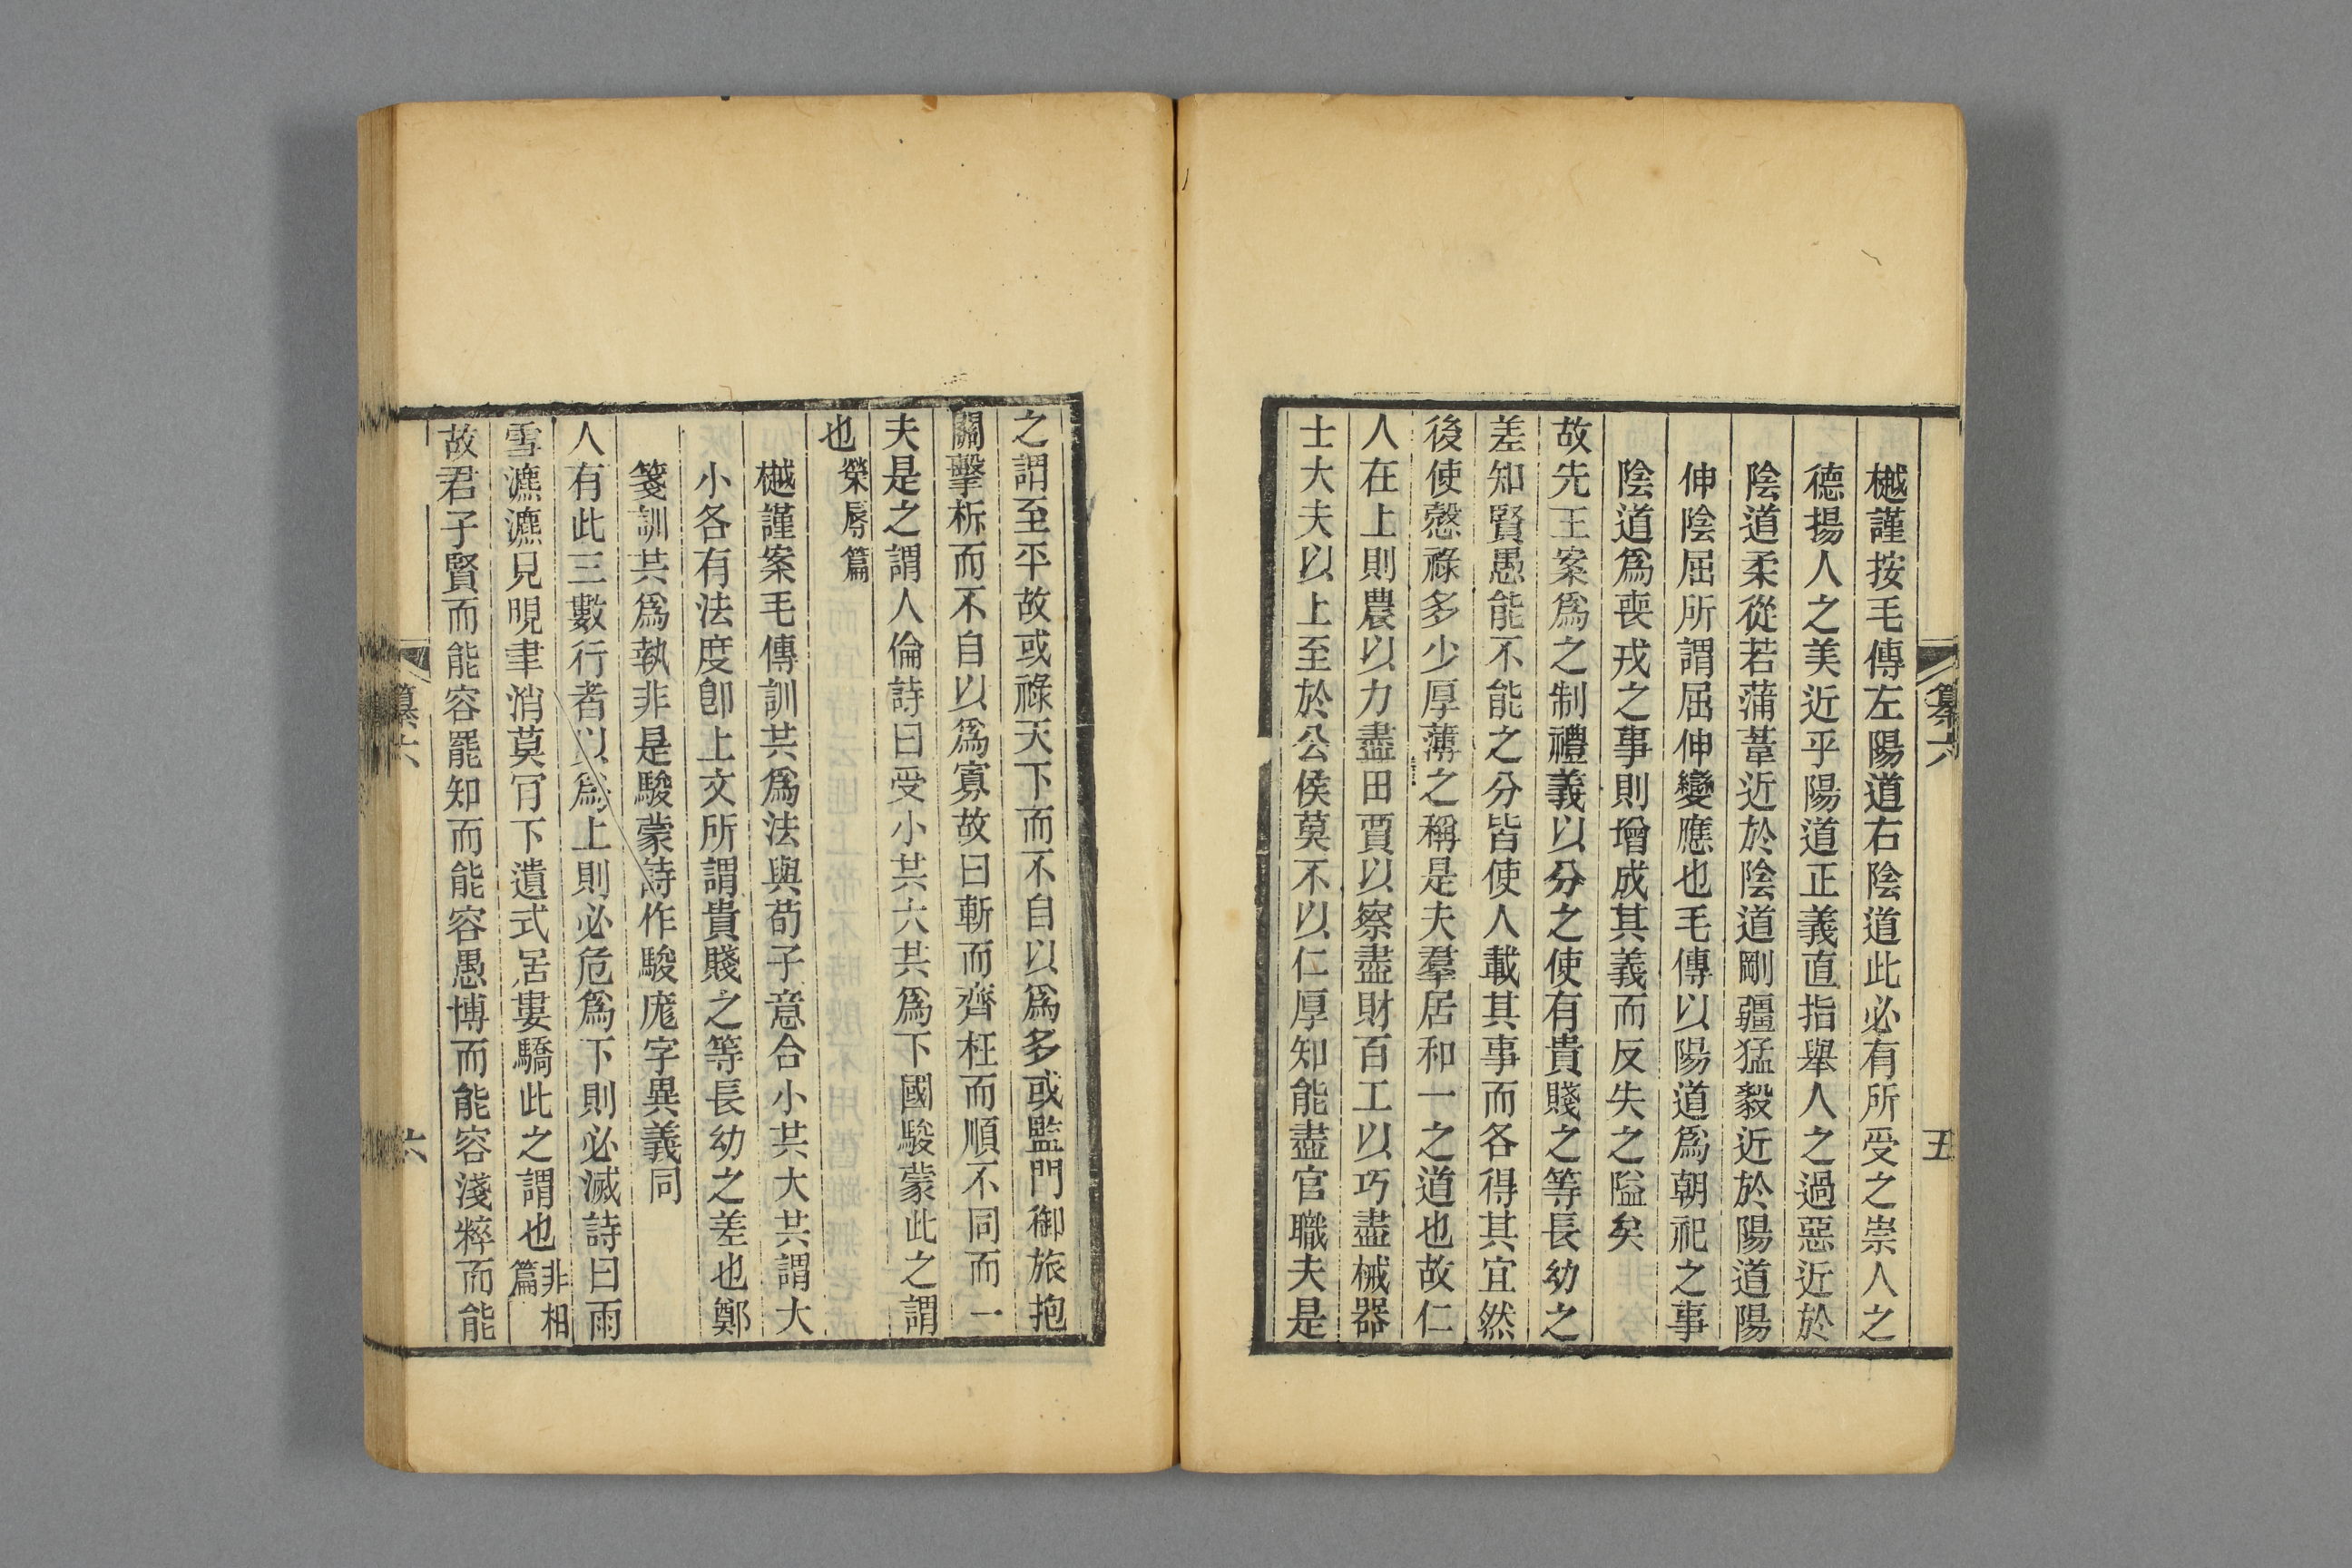 纂六
五
樾謹按毛傳左陽道右陰道此必有所受之崇人之
德揚人之美近乎陽道正義直指舉人之過惡近於
陰道柔從若蒲葦近於陰道剛彊猛毅近於陽道陽
伸陰屈所謂屈伸變應也毛傳以陽道爲朝祀之事
陰道爲喪戎之事則增成其義而反失之隘矣
故先王案爲之制禮義以分之使有貴賤之等長幼之
差知賢愚能不能之分皆使人載其事而各得其宜然
後使慤祿多少厚薄之稱是夫羣居和一之道也故仁
人在上則農以力盡田賈以察盡財百工以巧盡械器
士大夫以上至於公侯莫不以仁厚知能盡官職夫是
之謂至平故或祿天下而不自以爲多或監門御旅抱
關擊柝而不自以爲寡故曰斬而齊枉而順不同而一
夫是之謂人倫詩曰受小共大共爲下國駿蒙此之謂
也榮辱篇
樾謹案毛傳訓共爲法與荀子意合小共大共謂大
小各有法度卽上文所謂貴賤之等長幼之差也鄭
箋訓共爲執非是駿蒙詩作駿厖字異義同
人有此三數行者以爲上則必危爲下則必滅詩曰雨
雪瀌瀌見晛聿消莫肎下遺式居婁驕此之謂也非相篇
故君子賢而能容罷知而能容愚博而能容淺粹而能
纂六
六